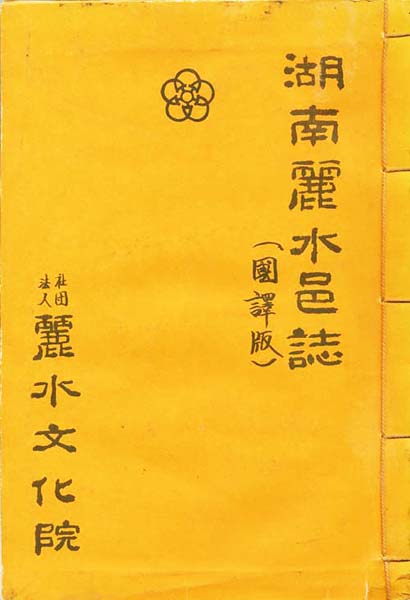 湖南麗水邑誌
（國譯版）
社団
法人
麗水文化院